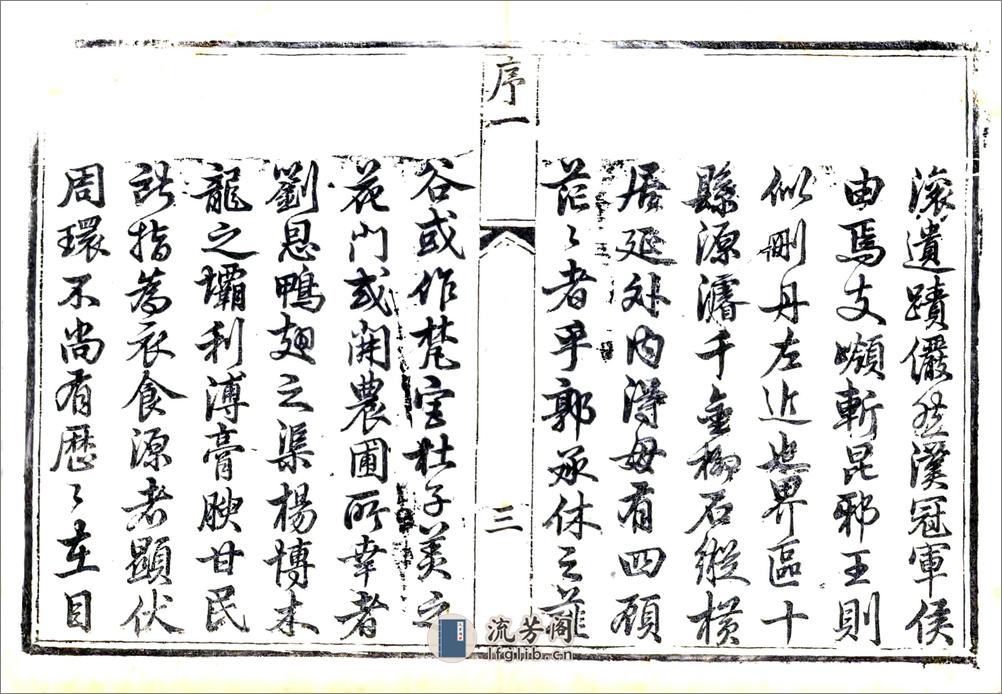 滚遺蹟儼然漢冠軍侯
由焉支嶺斬昆邪王則
似刪丹左近也界區十
縣源濬千金柳石縱橫
居延外內得毋有四顧
茫々者乎郭承休之薤
序一
三
谷或作梵宮杜子美之
花門或開農圃所幸者
劉恩鴨翅之渠楊博木
龍之壩利溥膏腴甘民
詺指為衣食源者顯伏
周環不尚有歷々在目
流芳阁
lfglib.cn